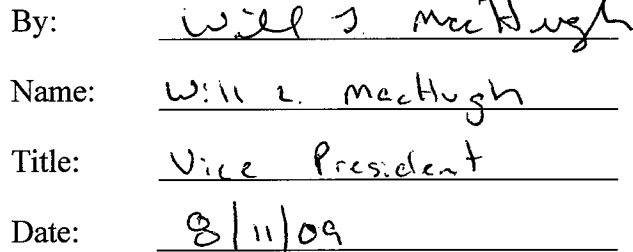 By: Will J. MacHugh
Name: Will L. MacHugh
Title: Vice President
Date: 8/11/09